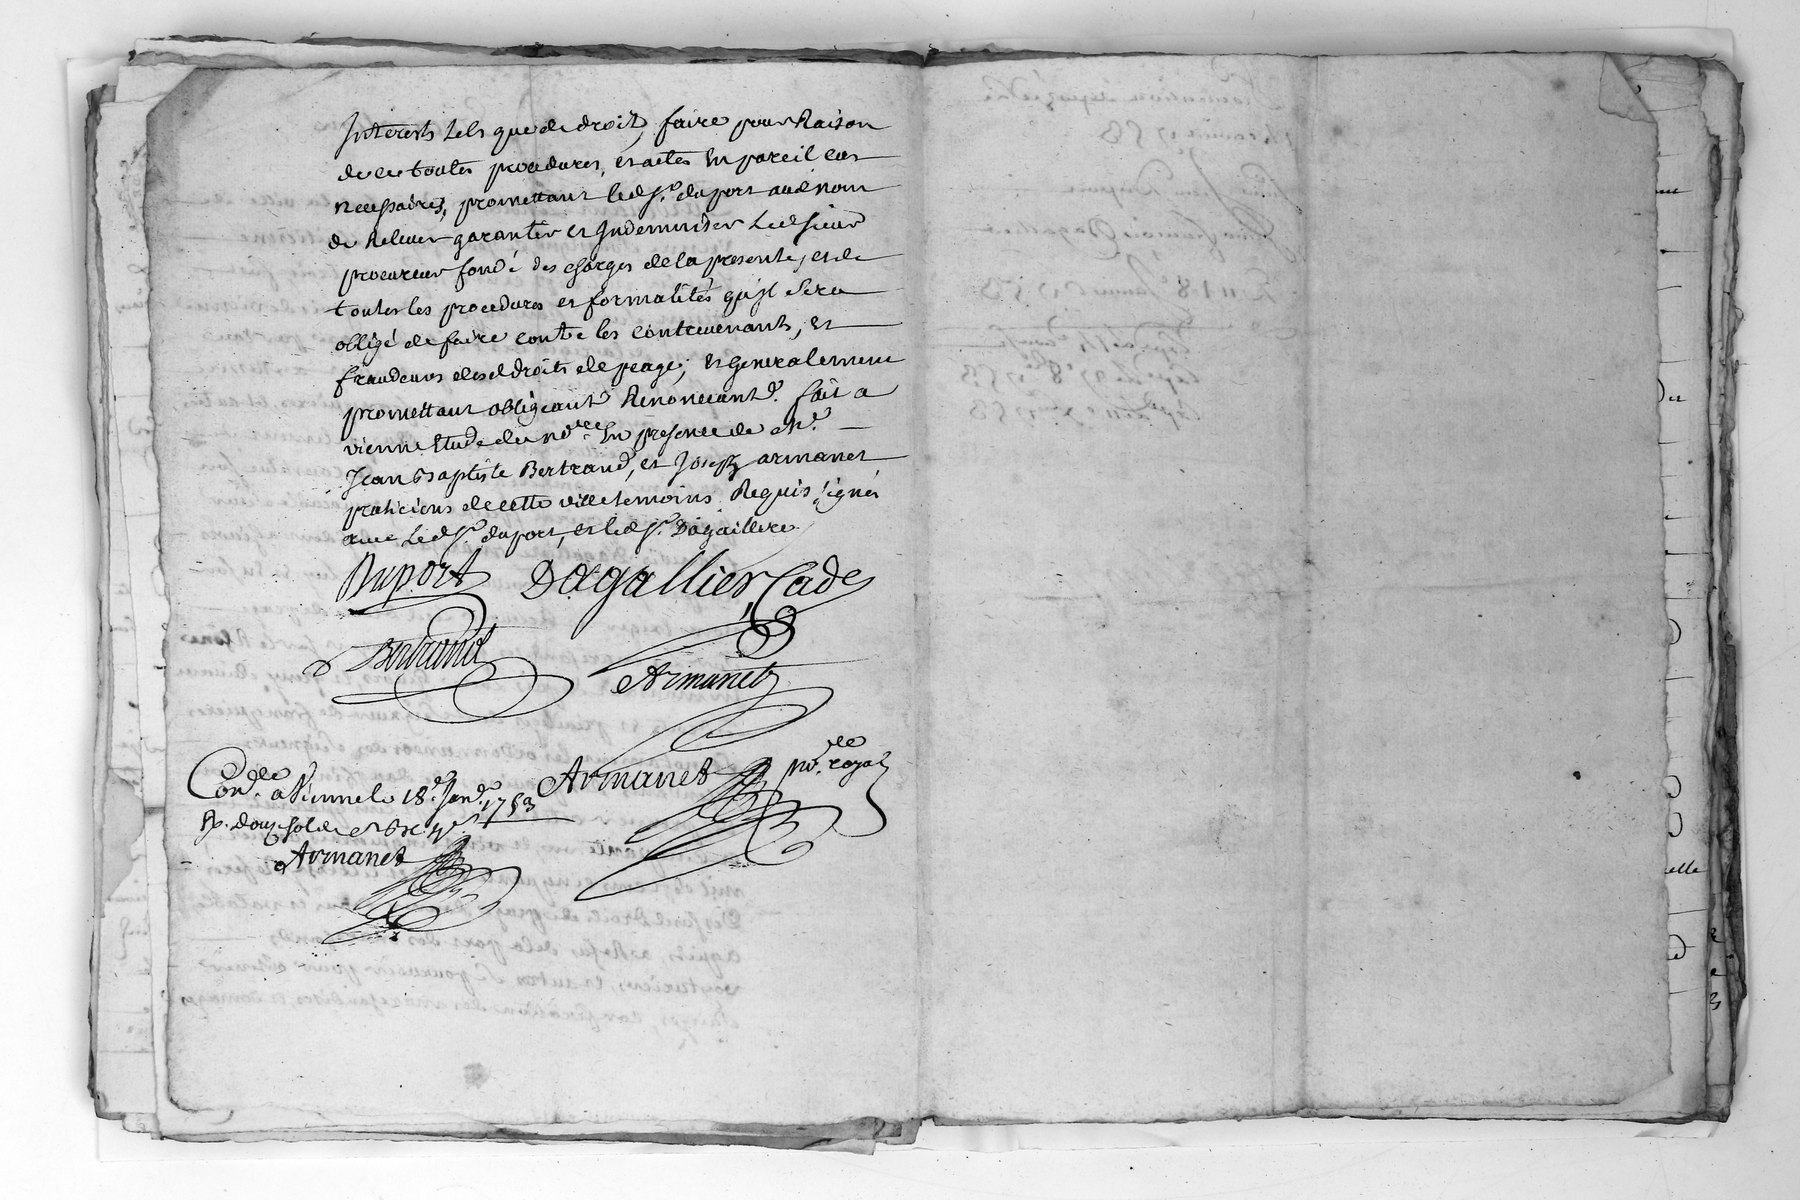 Interests tels que de droit, faire pour Raison
de ce toutes procedures, et actes En pareil cas
necessaires, promettant ledt Sr. duport aud nom
de Relever garantir et Indemniser Ledt Sieur
procureur fondé des charges de la presente, et de
toutes les procedures et formalités qu'il sera
obligé de faire contre les contrevenants, et
fraudeurs desd droits de peage; et Generalement
promettant obligeant Renoncant. fait a
vienne Etude du nore. En presence de Me.
Jean Baptiste Bertrand, et Joseph armanet
praticiens de cette ville temoins Requis signés
avec Ledt Sr. duport, et ledt Sr. Dagaillier
Duport Dagallier, Cade
Bertrand
Armanet
Armanet nore. royal
Conlle. a Vienne le 18e. Janr. 1753
R. douze sols
Armanet